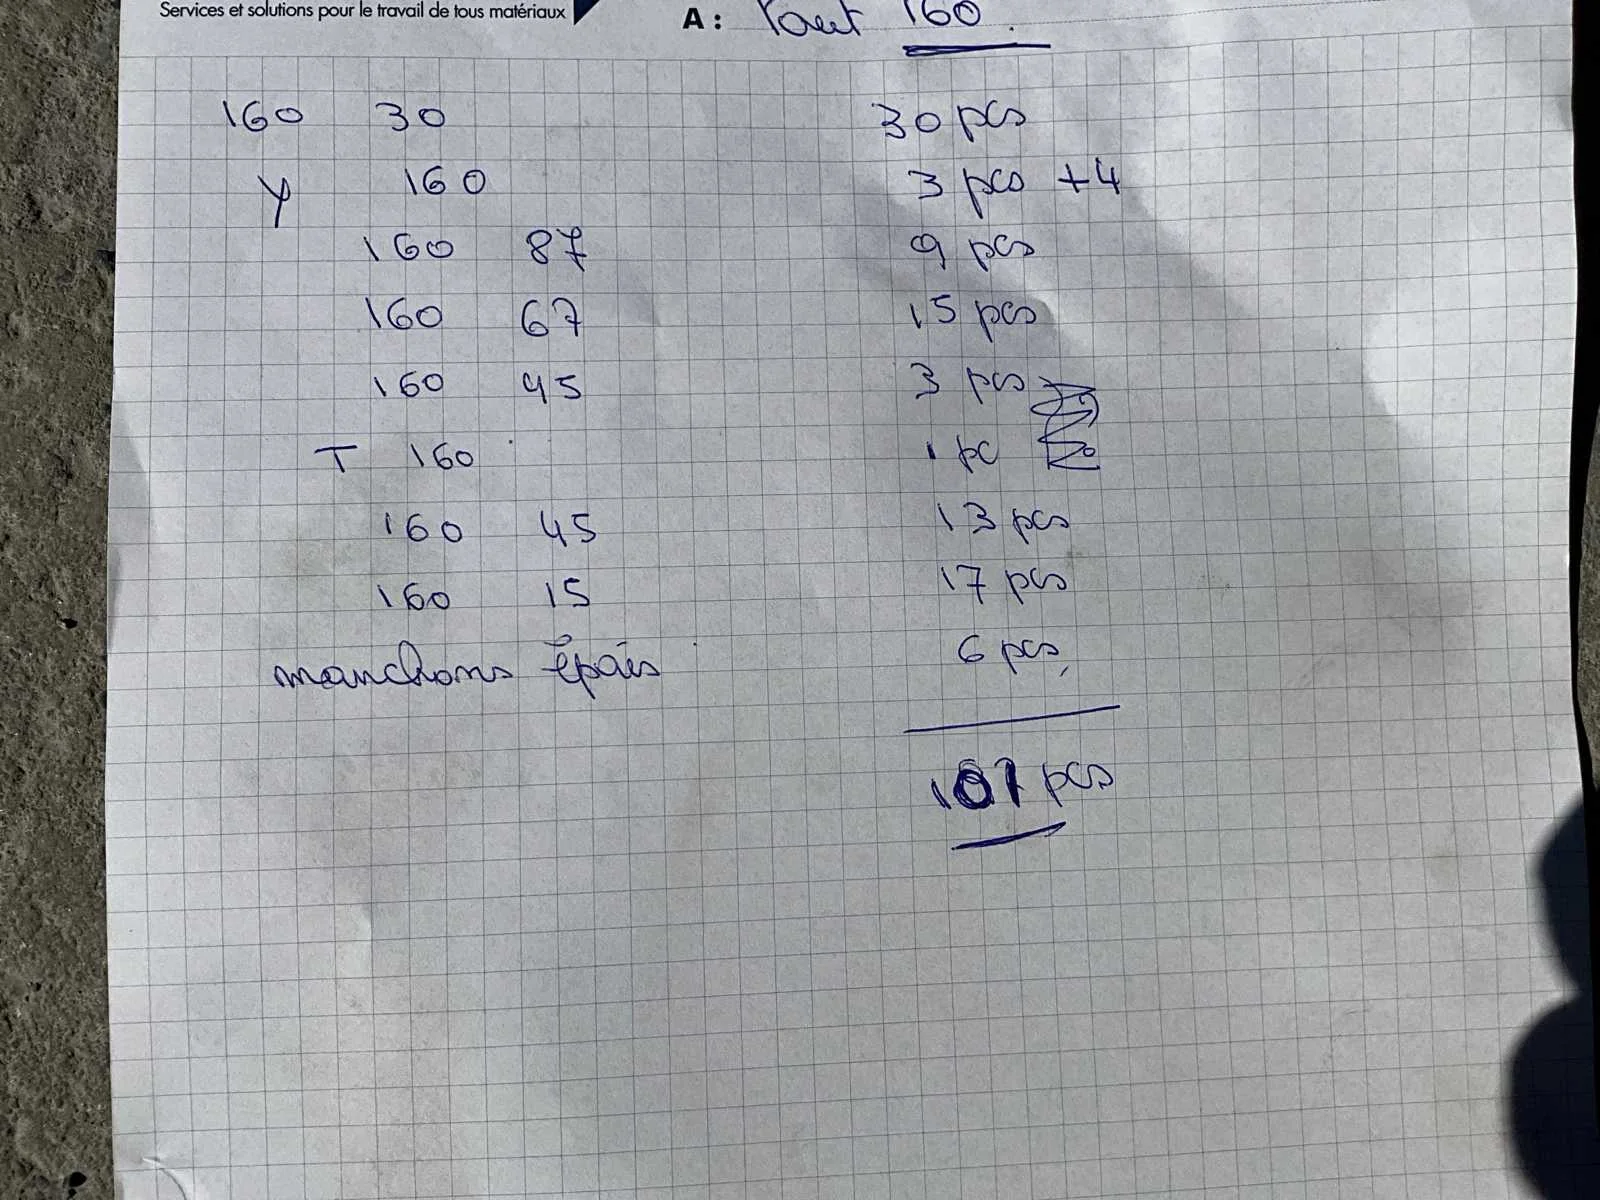 Services et solutions pour le travail de tous matériaux
A : Tout 160.
160 30 30 pcs
Y 160 3 pcs +4
160 87 9 pcs
160 67 15 pcs
160 45 3 pcs
T 160 1 pc
160 45 13 pcs
160 15 17 pcs
manchons épais 6 pcs
101 pcs